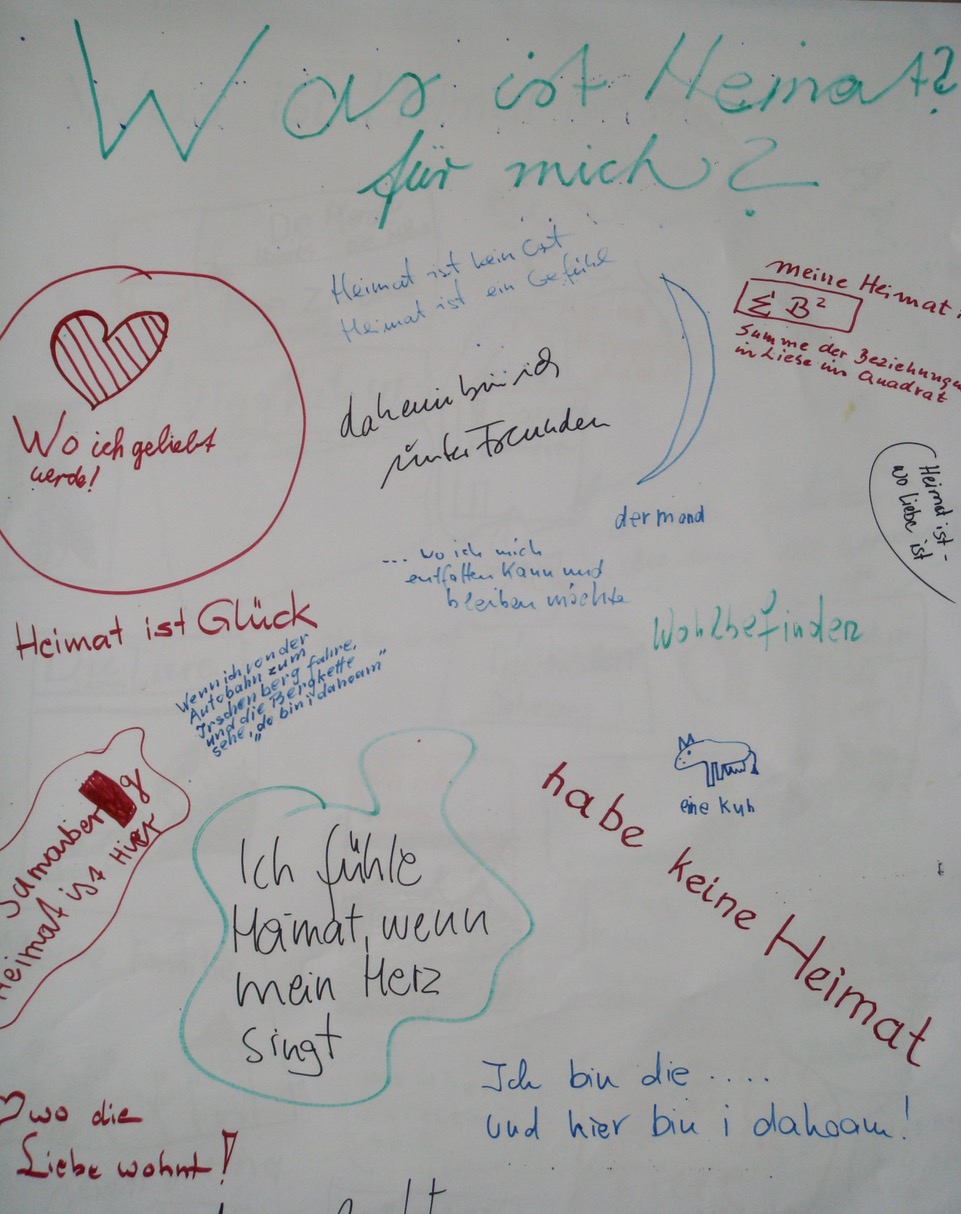 Was ist Heimat?
für mich?
Heimat ist kein Ort
Heimat ist ein Gefühl
meine Heimat:
Σ B²
Summe der Beziehungen
in Liebe im Quadrat
Wo ich geliebt
werde!
daheim bin ich
unter Freunden
der mond
Heimat ist -
wo liebe ist
... wo ich mich
entfalten kann und
bleiben möchte
Heimat ist Glück
Wohlbefinden
Wenn ich von der
Autobahn zum
Irschenberg fahre,
und die Bergkette
sehe, "do bin i dahoam"
eine Kuh
habe keine Heimat
Heimat ist Hier
Ich fühle
Heimat, wenn
mein Herz
singt
Ich bin die .....
und hier bin i dahoam!
wo die
Liebe wohnt!